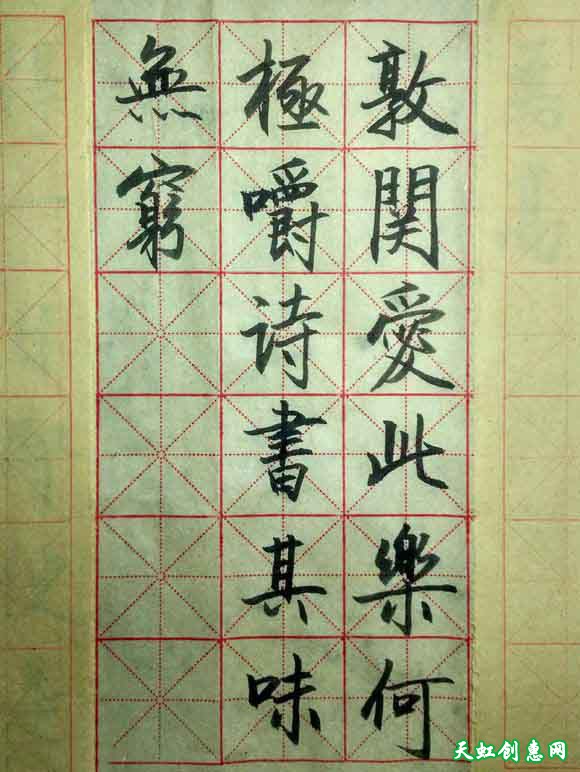 敦関愛此樂何
極嚼诗書其味
無窮
天虹创惠网